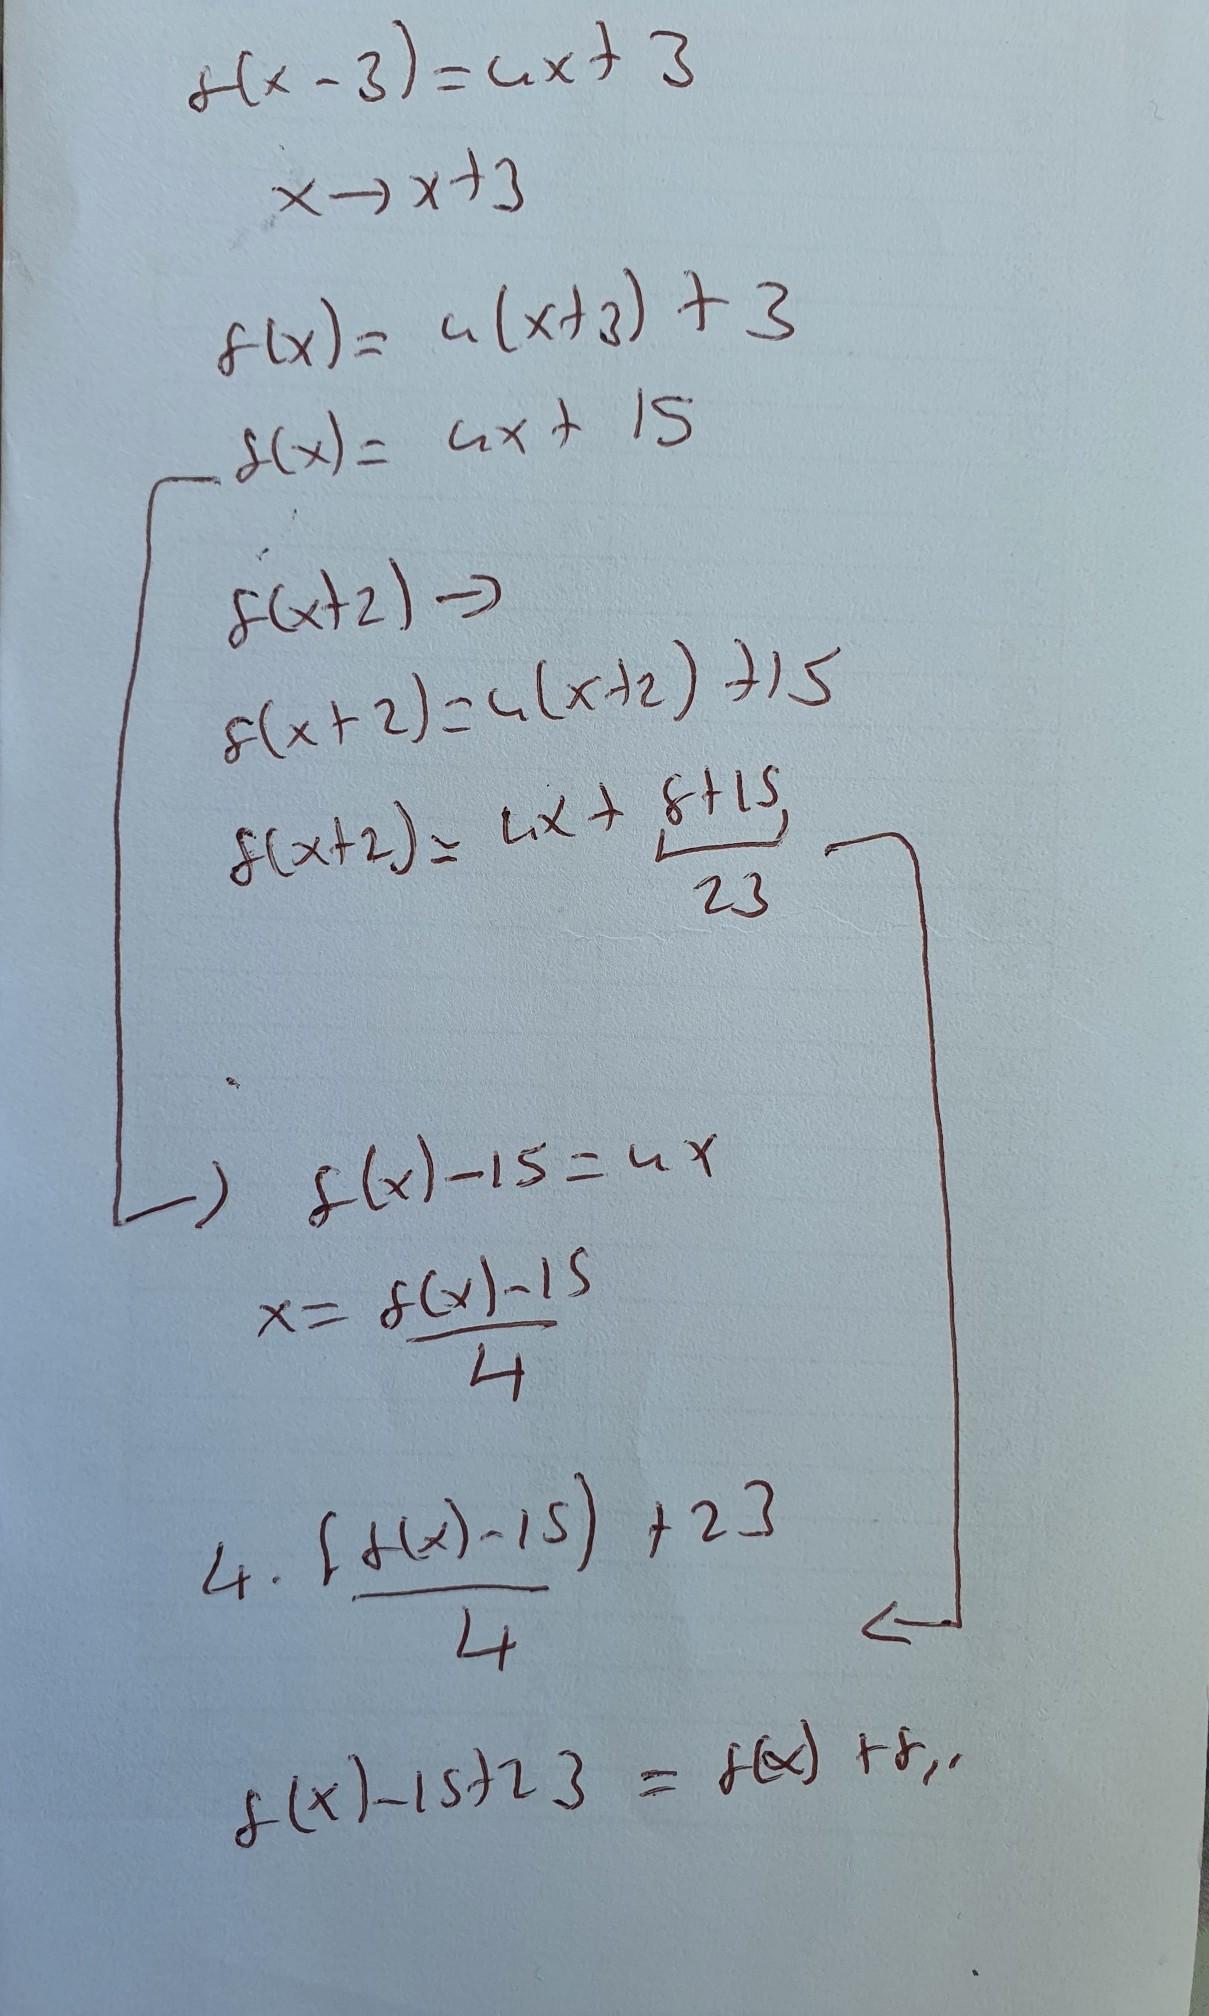 f(x-3)=4x+3
x→x+3
f(x)= 4(x+3)+3
f(x)= 4x+ 15
f(x+2)→
f(x+2)=4(x+2)+15
f(x+2)= 4x+ 8+15
23
f(x)-15=4x
x= f(x)-15
4
4.(f(x)-15)+23
4
f(x)-15+23 = f(x)+8,,